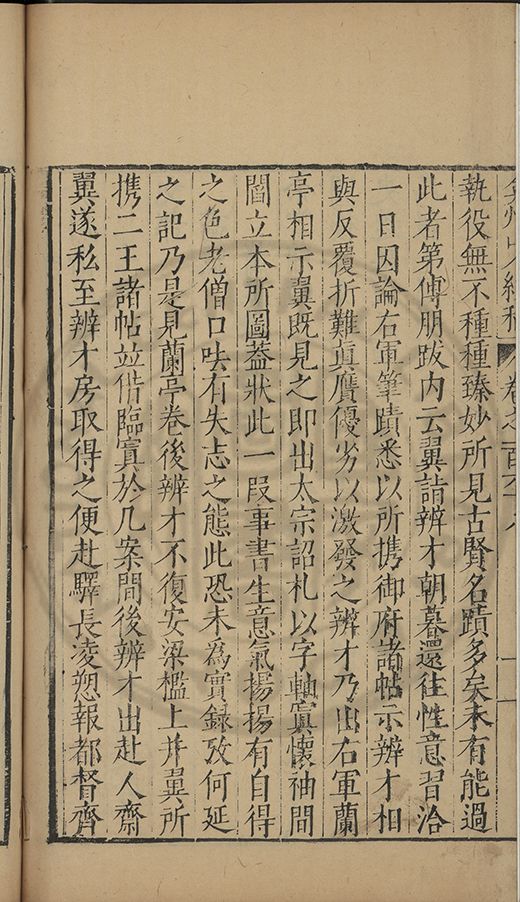 弇州山人續稿 卷之一百六十八
執役無不種種臻妙所見古賢名蹟多矣未有能過
此者第傅朋跋內云翼詣辨才朝暮還往性意習洽
一日因論右軍筆蹟悉以所携御府諸帖示辨才相
與反覆折難真贗優劣以激發之辨才乃出右軍蘭
亭相示翼既見之即出太宗詔札以字軸寘懷袖間
閻立本所圖蓋狀此一段事書生意氣揚揚有自得
之色老僧口呿有失志之態此恐未為實録攷何延
之記乃是見蘭亭卷後辨才不復安梁檻上并翼所
携二王諸帖竝借臨寘於几案間後辨才出赴人齋
翼遂私至辨才房取得之便赴驛長凌愬報都督齊